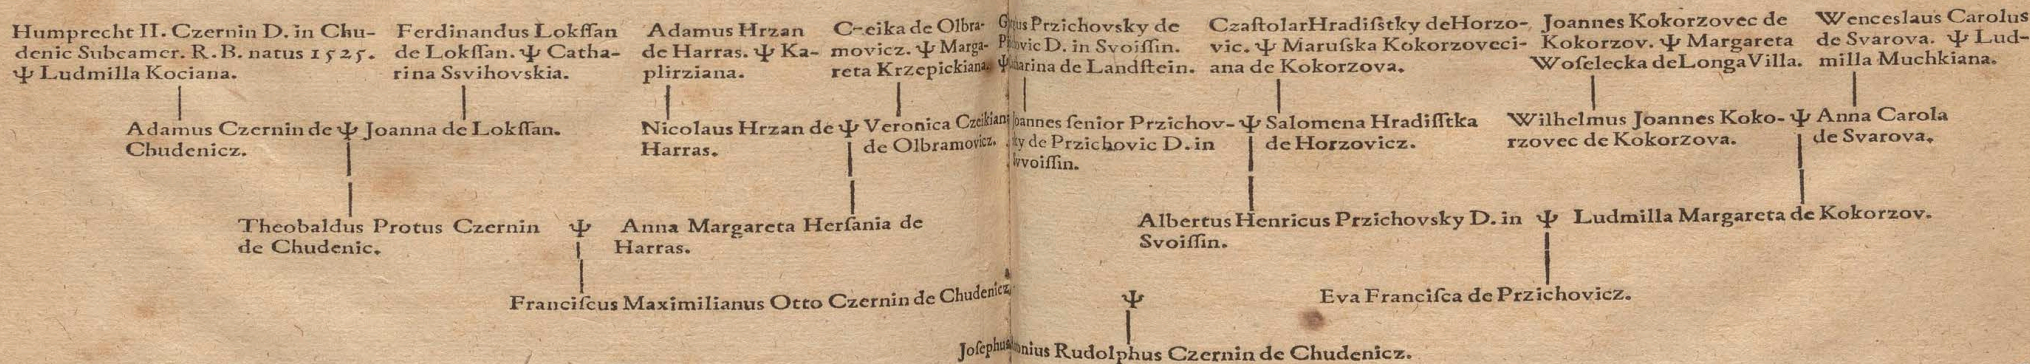 Humprecht II. Czernin D. in Chu-
denic Subcamer. R. B. natus 1525.
Ψ Ludmilla Kociana.
Ferdinandus Lokſſan
de Lokſſan. Ψ Catha-
rina Ssvihovskia.
Adamus Hrzan
de Harras. Ψ Ka-
plirziana.
de Olbra-
movicz. Ψ Marga-
reta Krzepickiana.
Przichovsky de
D. in Svoiſſin.
Ψ de Landſtein.
Czaſtolar Hradiſstky de Horzo-
vic. Ψ Maruſska Kokorzoveci-
ana de Kokorzova.
Joannes Kokorzovec de
Kokorzov. Ψ Margareta
Woſelecka de Longa Villa.
Wenceslaus Carolus
de Svarova. Ψ Lud-
milla Muchkiana.
Adamus Czernin de Ψ Joanna de Lokſſan.
Chudenicz.
Nicolaus Hrzan de Ψ Veronica Czeikiana
Harras. de Olbramovicz.
oannes ſenior Przichov- Ψ Salomena Hradiſſtka
ky de Przichovic D. in de Horzovicz.
voiſſin.
Wilhelmus Joannes Koko- Ψ Anna Carola
rzovec de Kokorzova. de Svarova.
Theobaldus Protus Czernin Ψ Anna Margareta Herſania de
de Chudenic. Harras.
Albertus Henricus Przichovsky D. in Ψ Ludmilla Margareta de Kokorzov.
Svoiſſin.
Franciſcus Maximilianus Otto Czernin de Chudenicz. Ψ Eva Franciſca de Przichovicz.
Joſephus Rudolphus Czernin de Chudenicz.